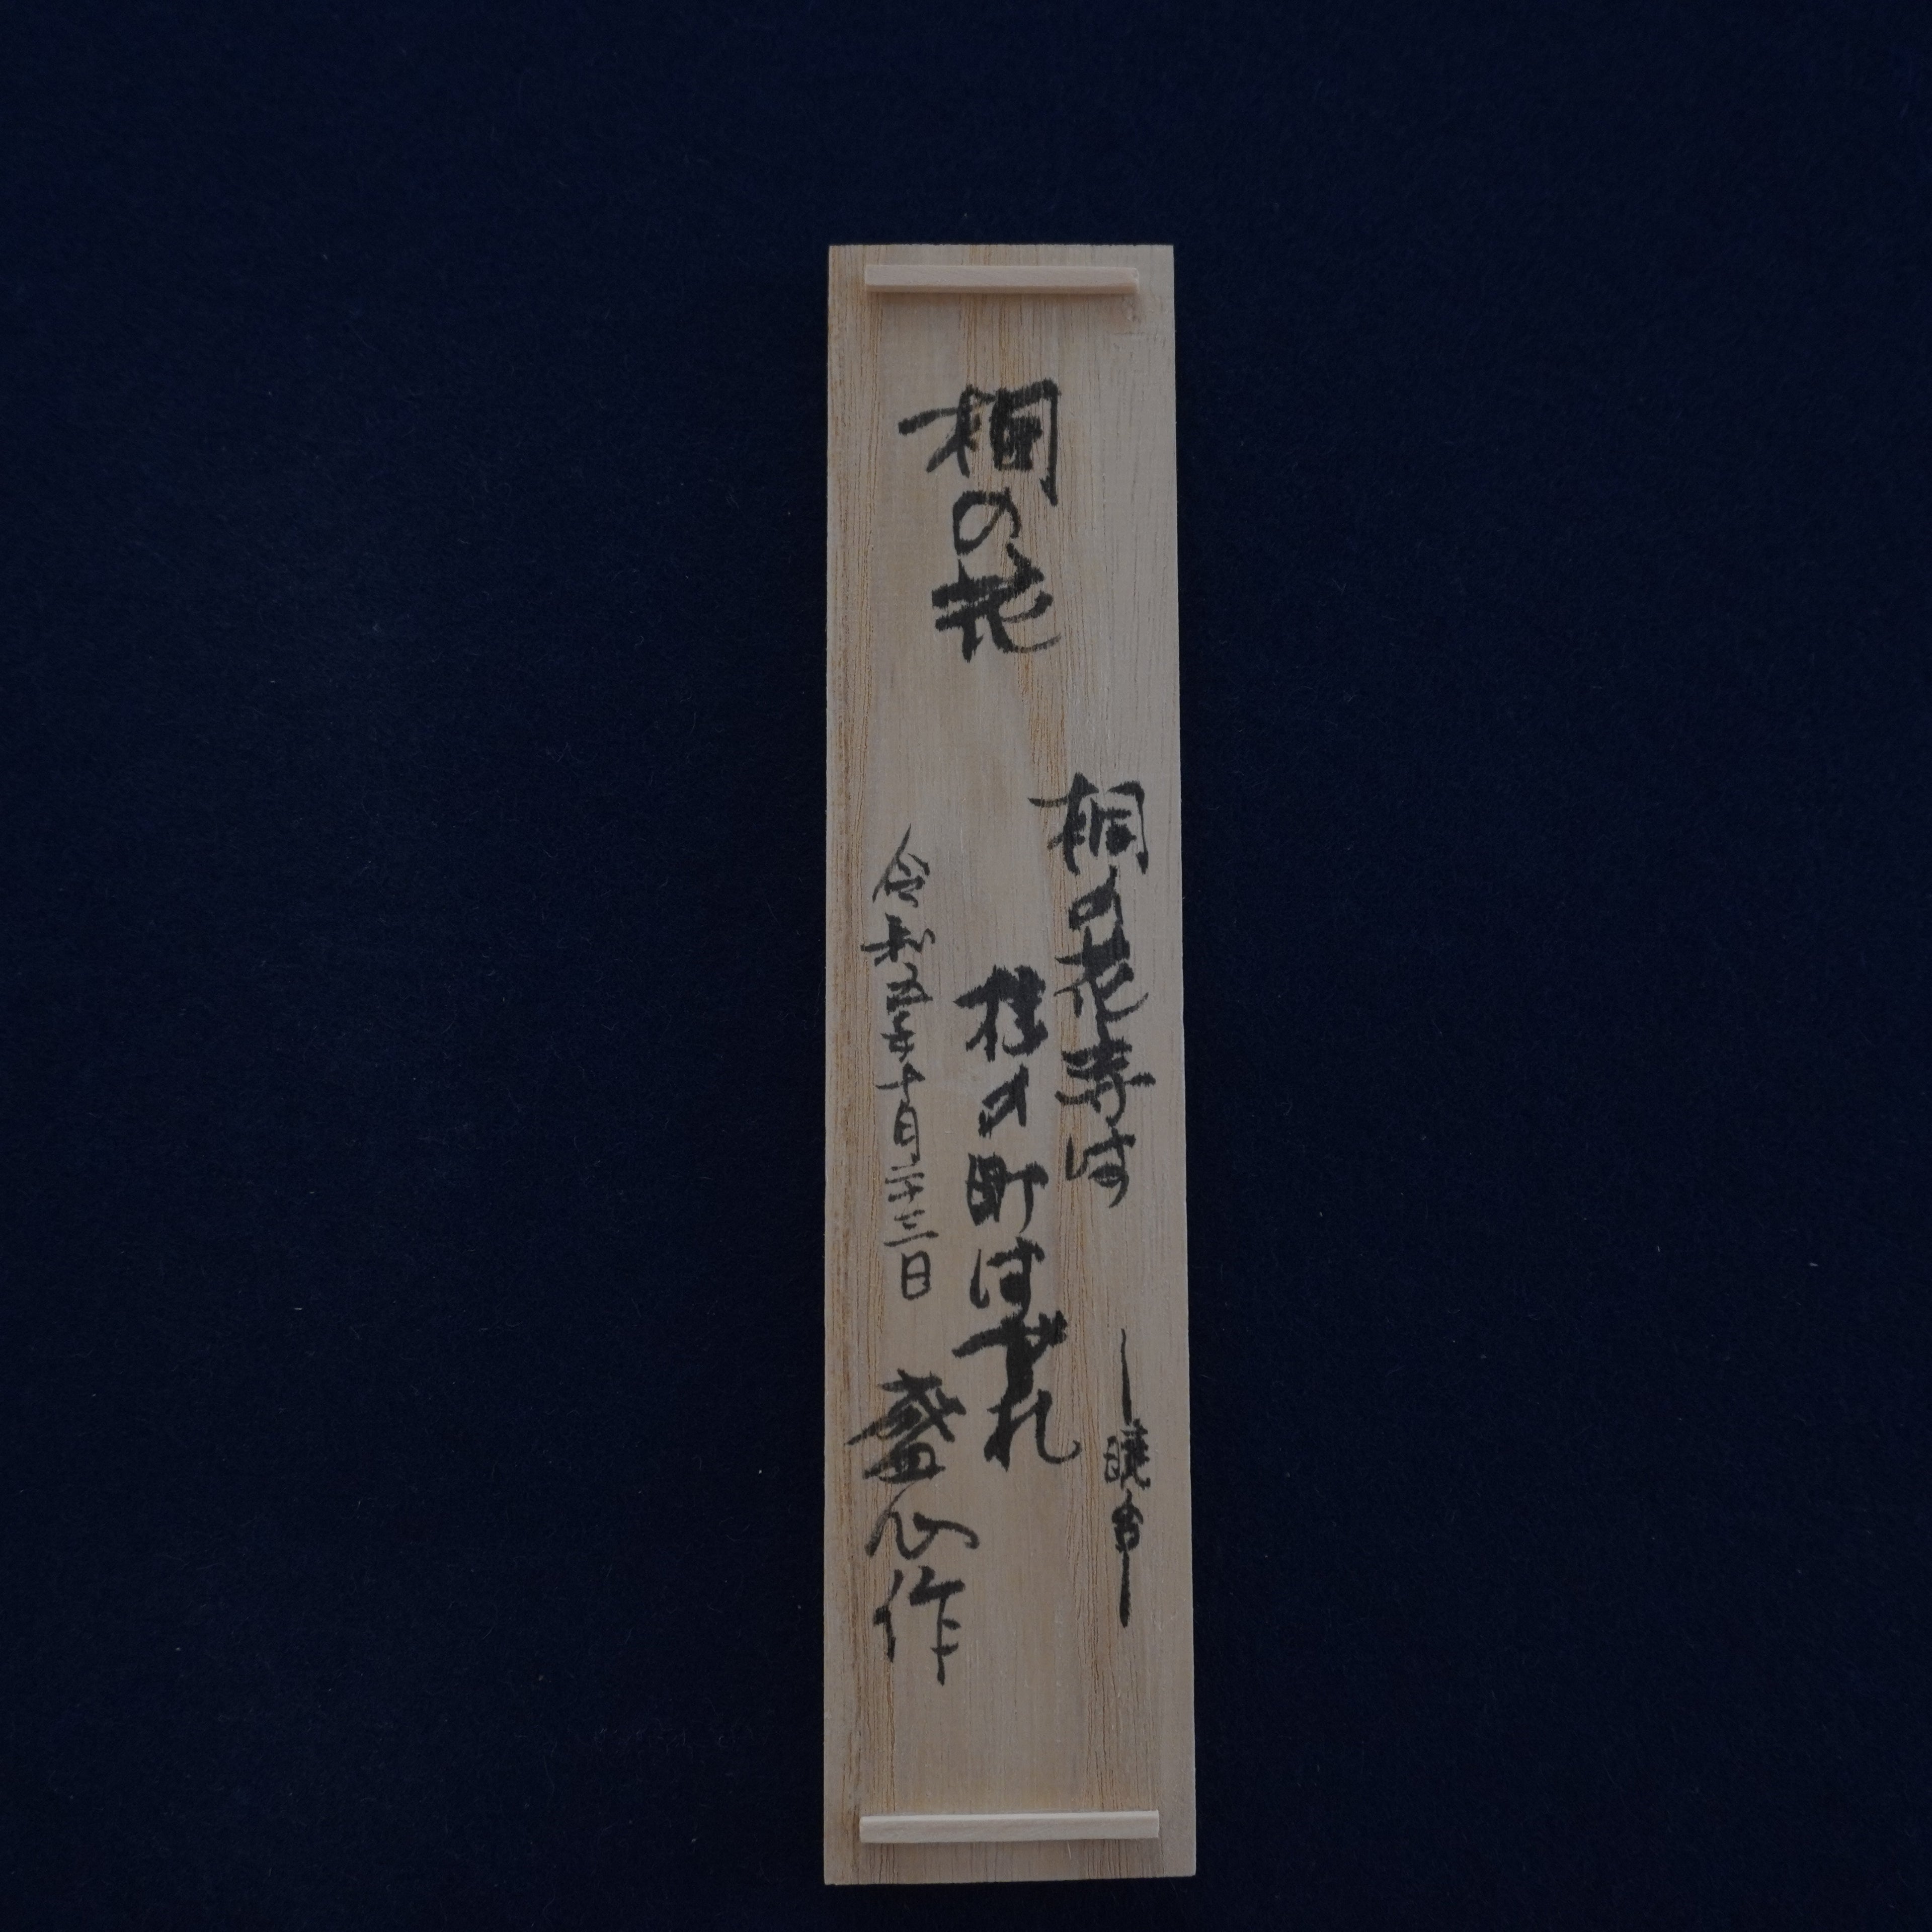 桐の花
桐の花寺は
桂の町はずれ
― 曉台 ―
令和五年十月二十三日
盛心作